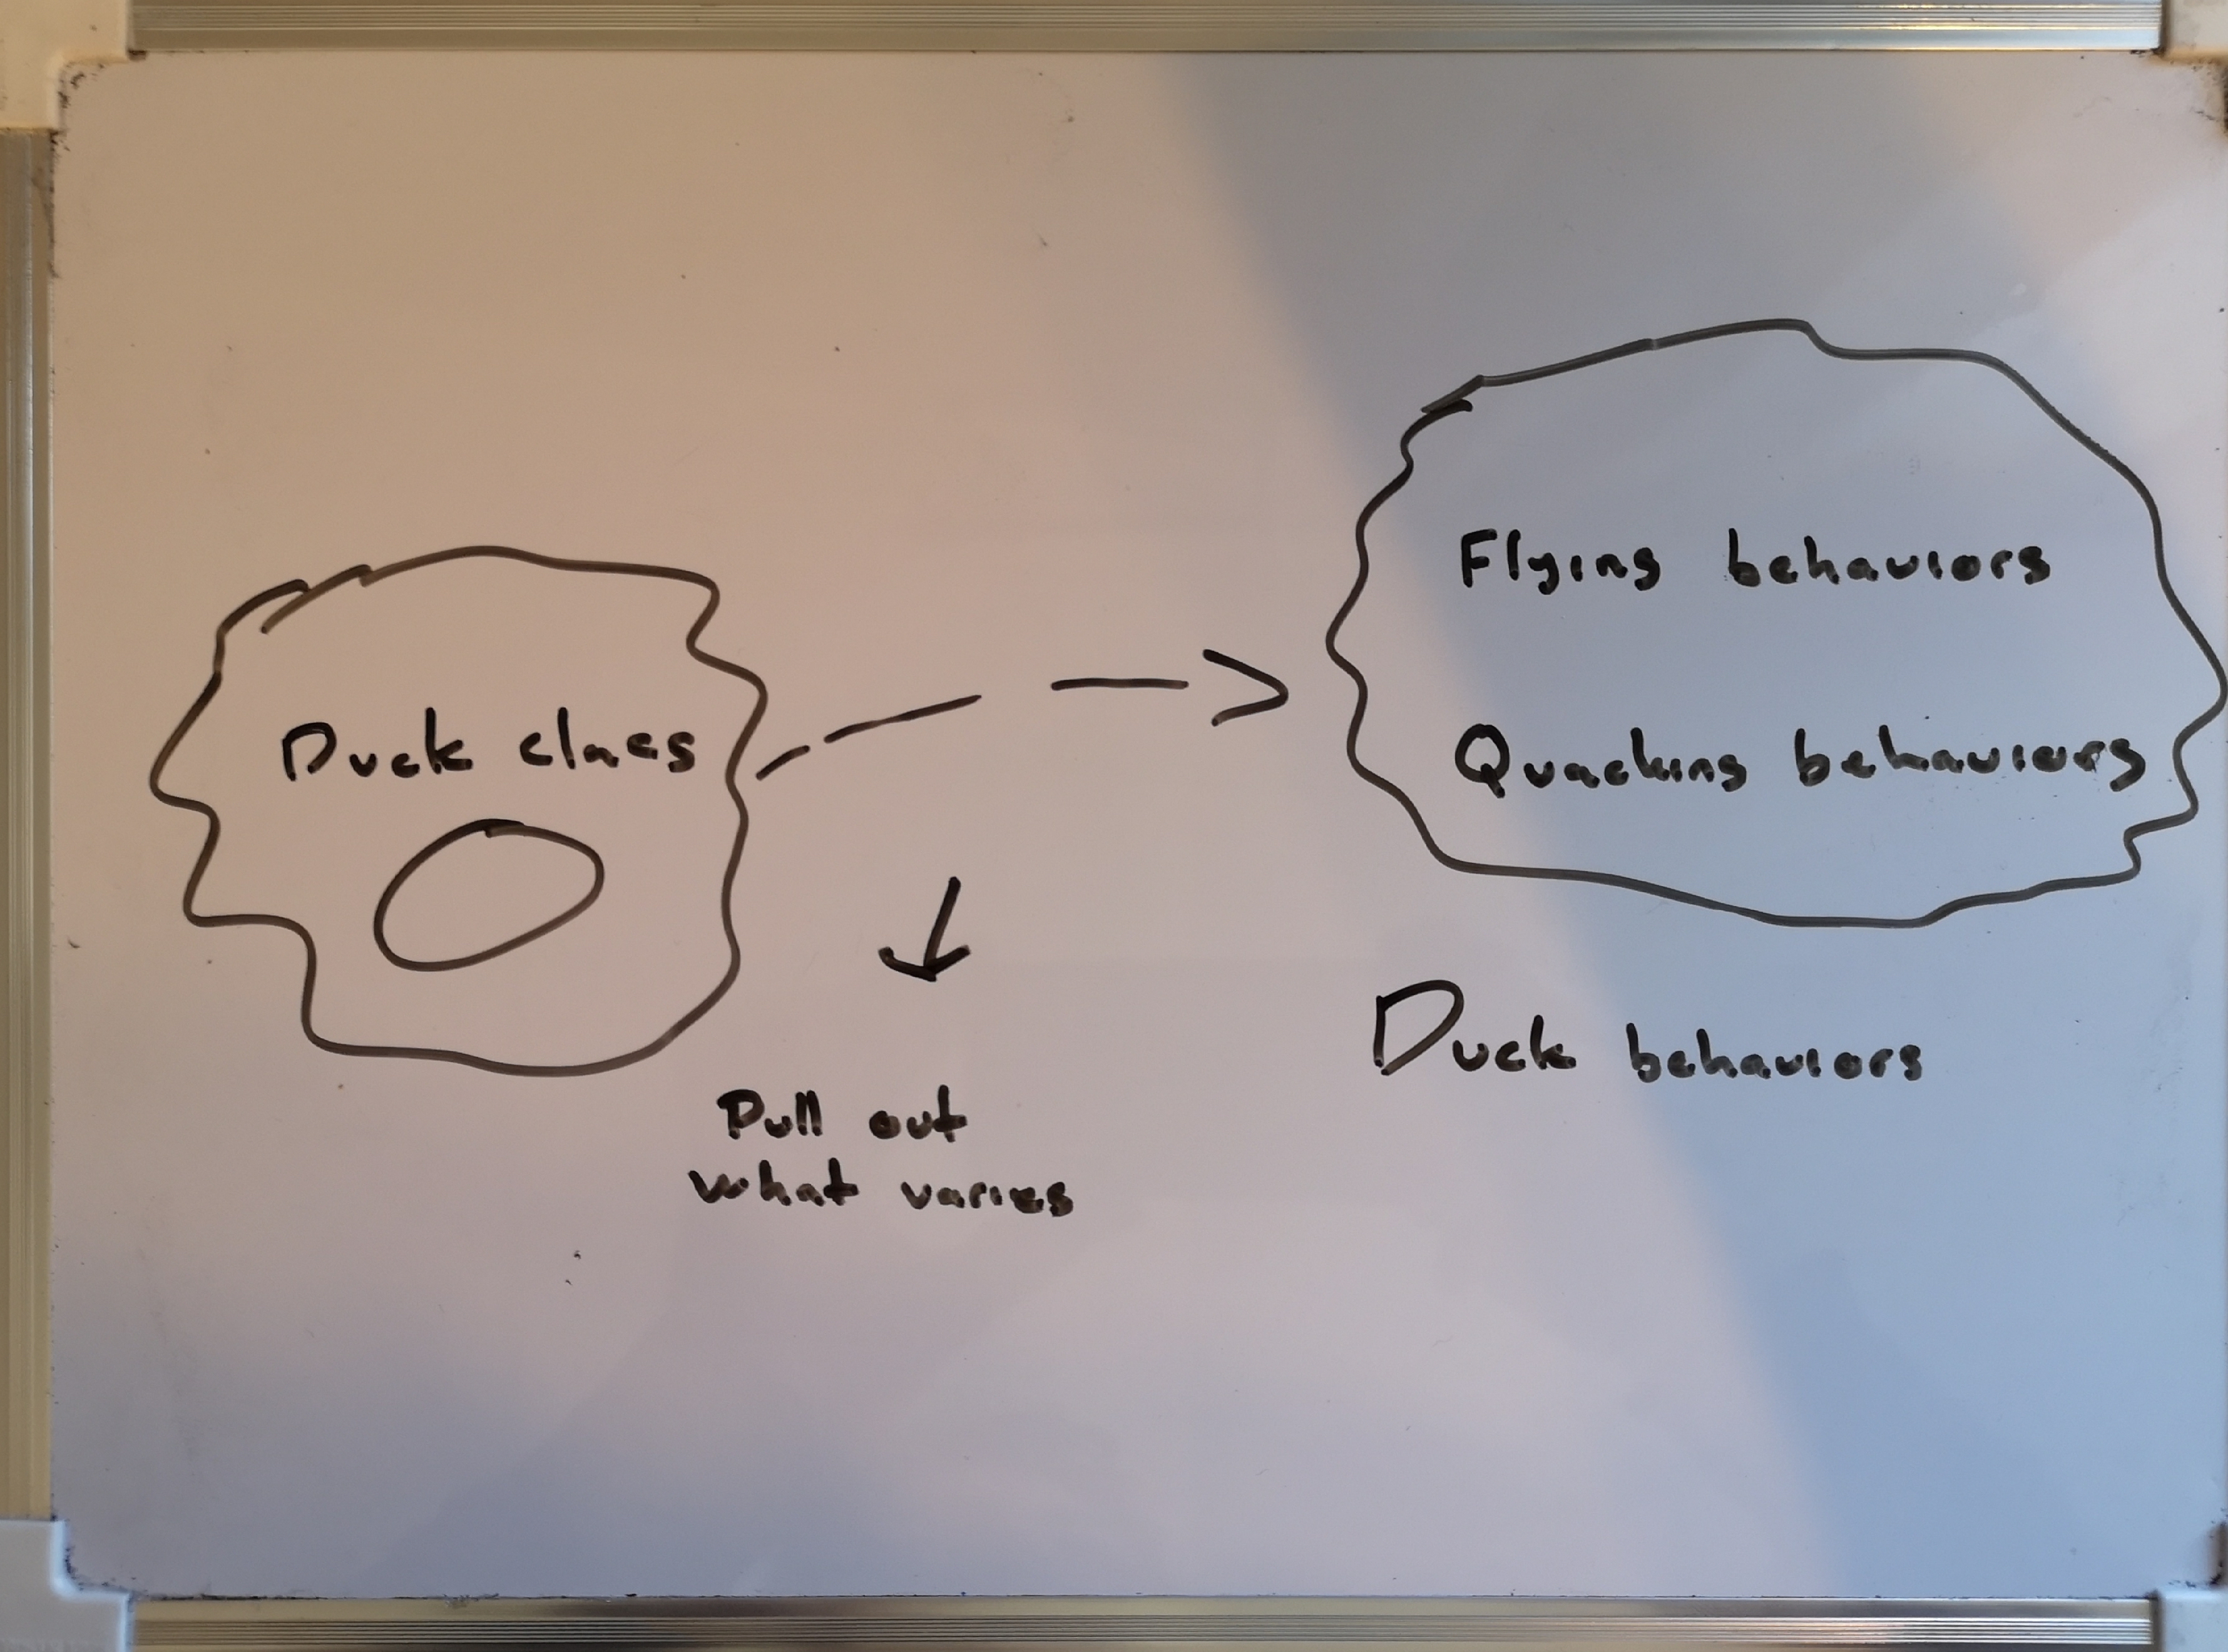 Duck class
Flying behaviors
Quacking behaviors
Duck behaviors
Pull out
what varies